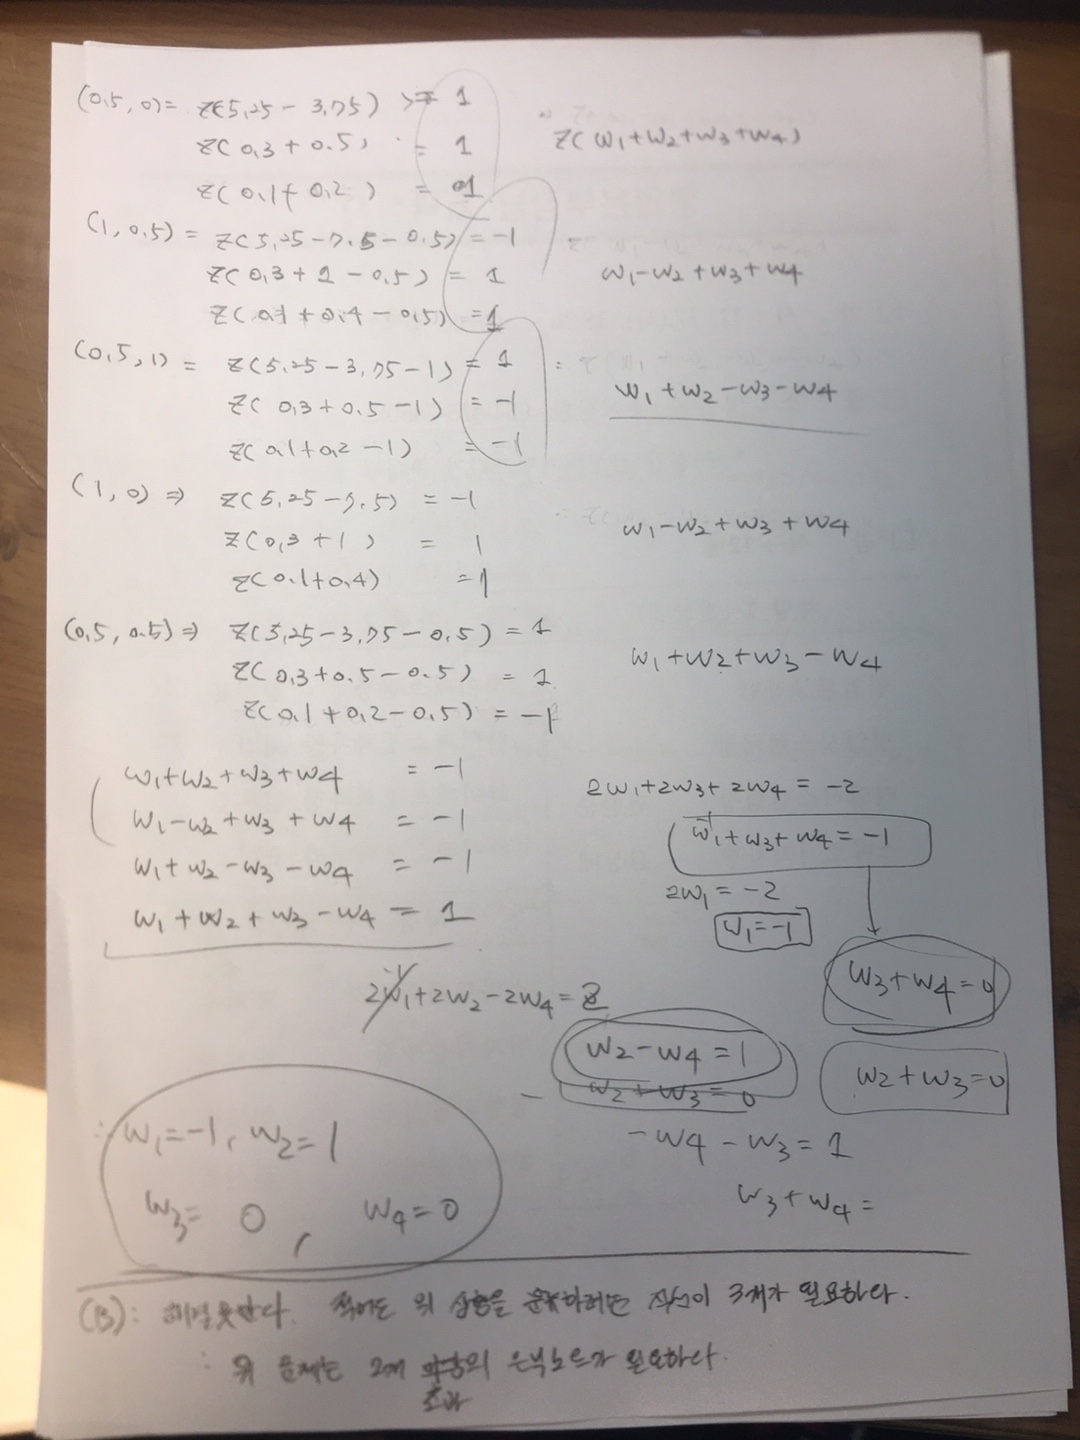 (0.5, 0) = z(5.25 - 3.75) = 1
z(0.3 + 0.5) = 1
z(0.1 + 0.2) = 1
z(w₁+w₂+w₃+w₄)
(1, 0.5) = z(5.25 - 7.5 - 0.5) = -1
z(0.3 + 1 - 0.5) = 1
z(0.1 + 0.4 - 0.5) = 1
w₁-w₂+w₃+w₄
(0.5, 1) = z(5.25 - 3.75 - 1) = 1
z(0.3+0.5-1) = -1
z(0.1+0.2-1) = -1
w₁+w₂-w₃-w₄
(1, 0) ⇒ z(5.25-7.5) = -1
z(0.3+1) = 1
z(0.1+0.4) = 1
w₁-w₂+w₃+w₄
(0.5, 0.5) ⇒ z(5.25-3.75-0.5) = 1
z(0.3+0.5-0.5) = 1
z(0.1+0.2-0.5) = -1
w₁+w₂+w₃-w₄
w₁+w₂+w₃+w₄ = -1
w₁-w₂+w₃+w₄ = -1
w₁+w₂-w₃-w₄ = -1
w₁+w₂+w₃-w₄ = 1
2w₁+2w₃+2w₄ = -2
w₁+w₃+w₄ = -1
2w₁ = -2
w₁=-1
w₃+w₄=0
2w₁+2w₂-2w₄=2
w₂-w₄=1
w₂+w₃=0
w₂+w₃=0
-w₄-w₃=1
w₃+w₄=
∴ w₁=-1, w₂=1
w₃= 0, w₄=0
(B): 해결못한다. 적어도 위 상황을 하려면 직선이 3개가 필요하다.
∴ 위 문제는 2개 의 은닉노드가 필요하다.
초과